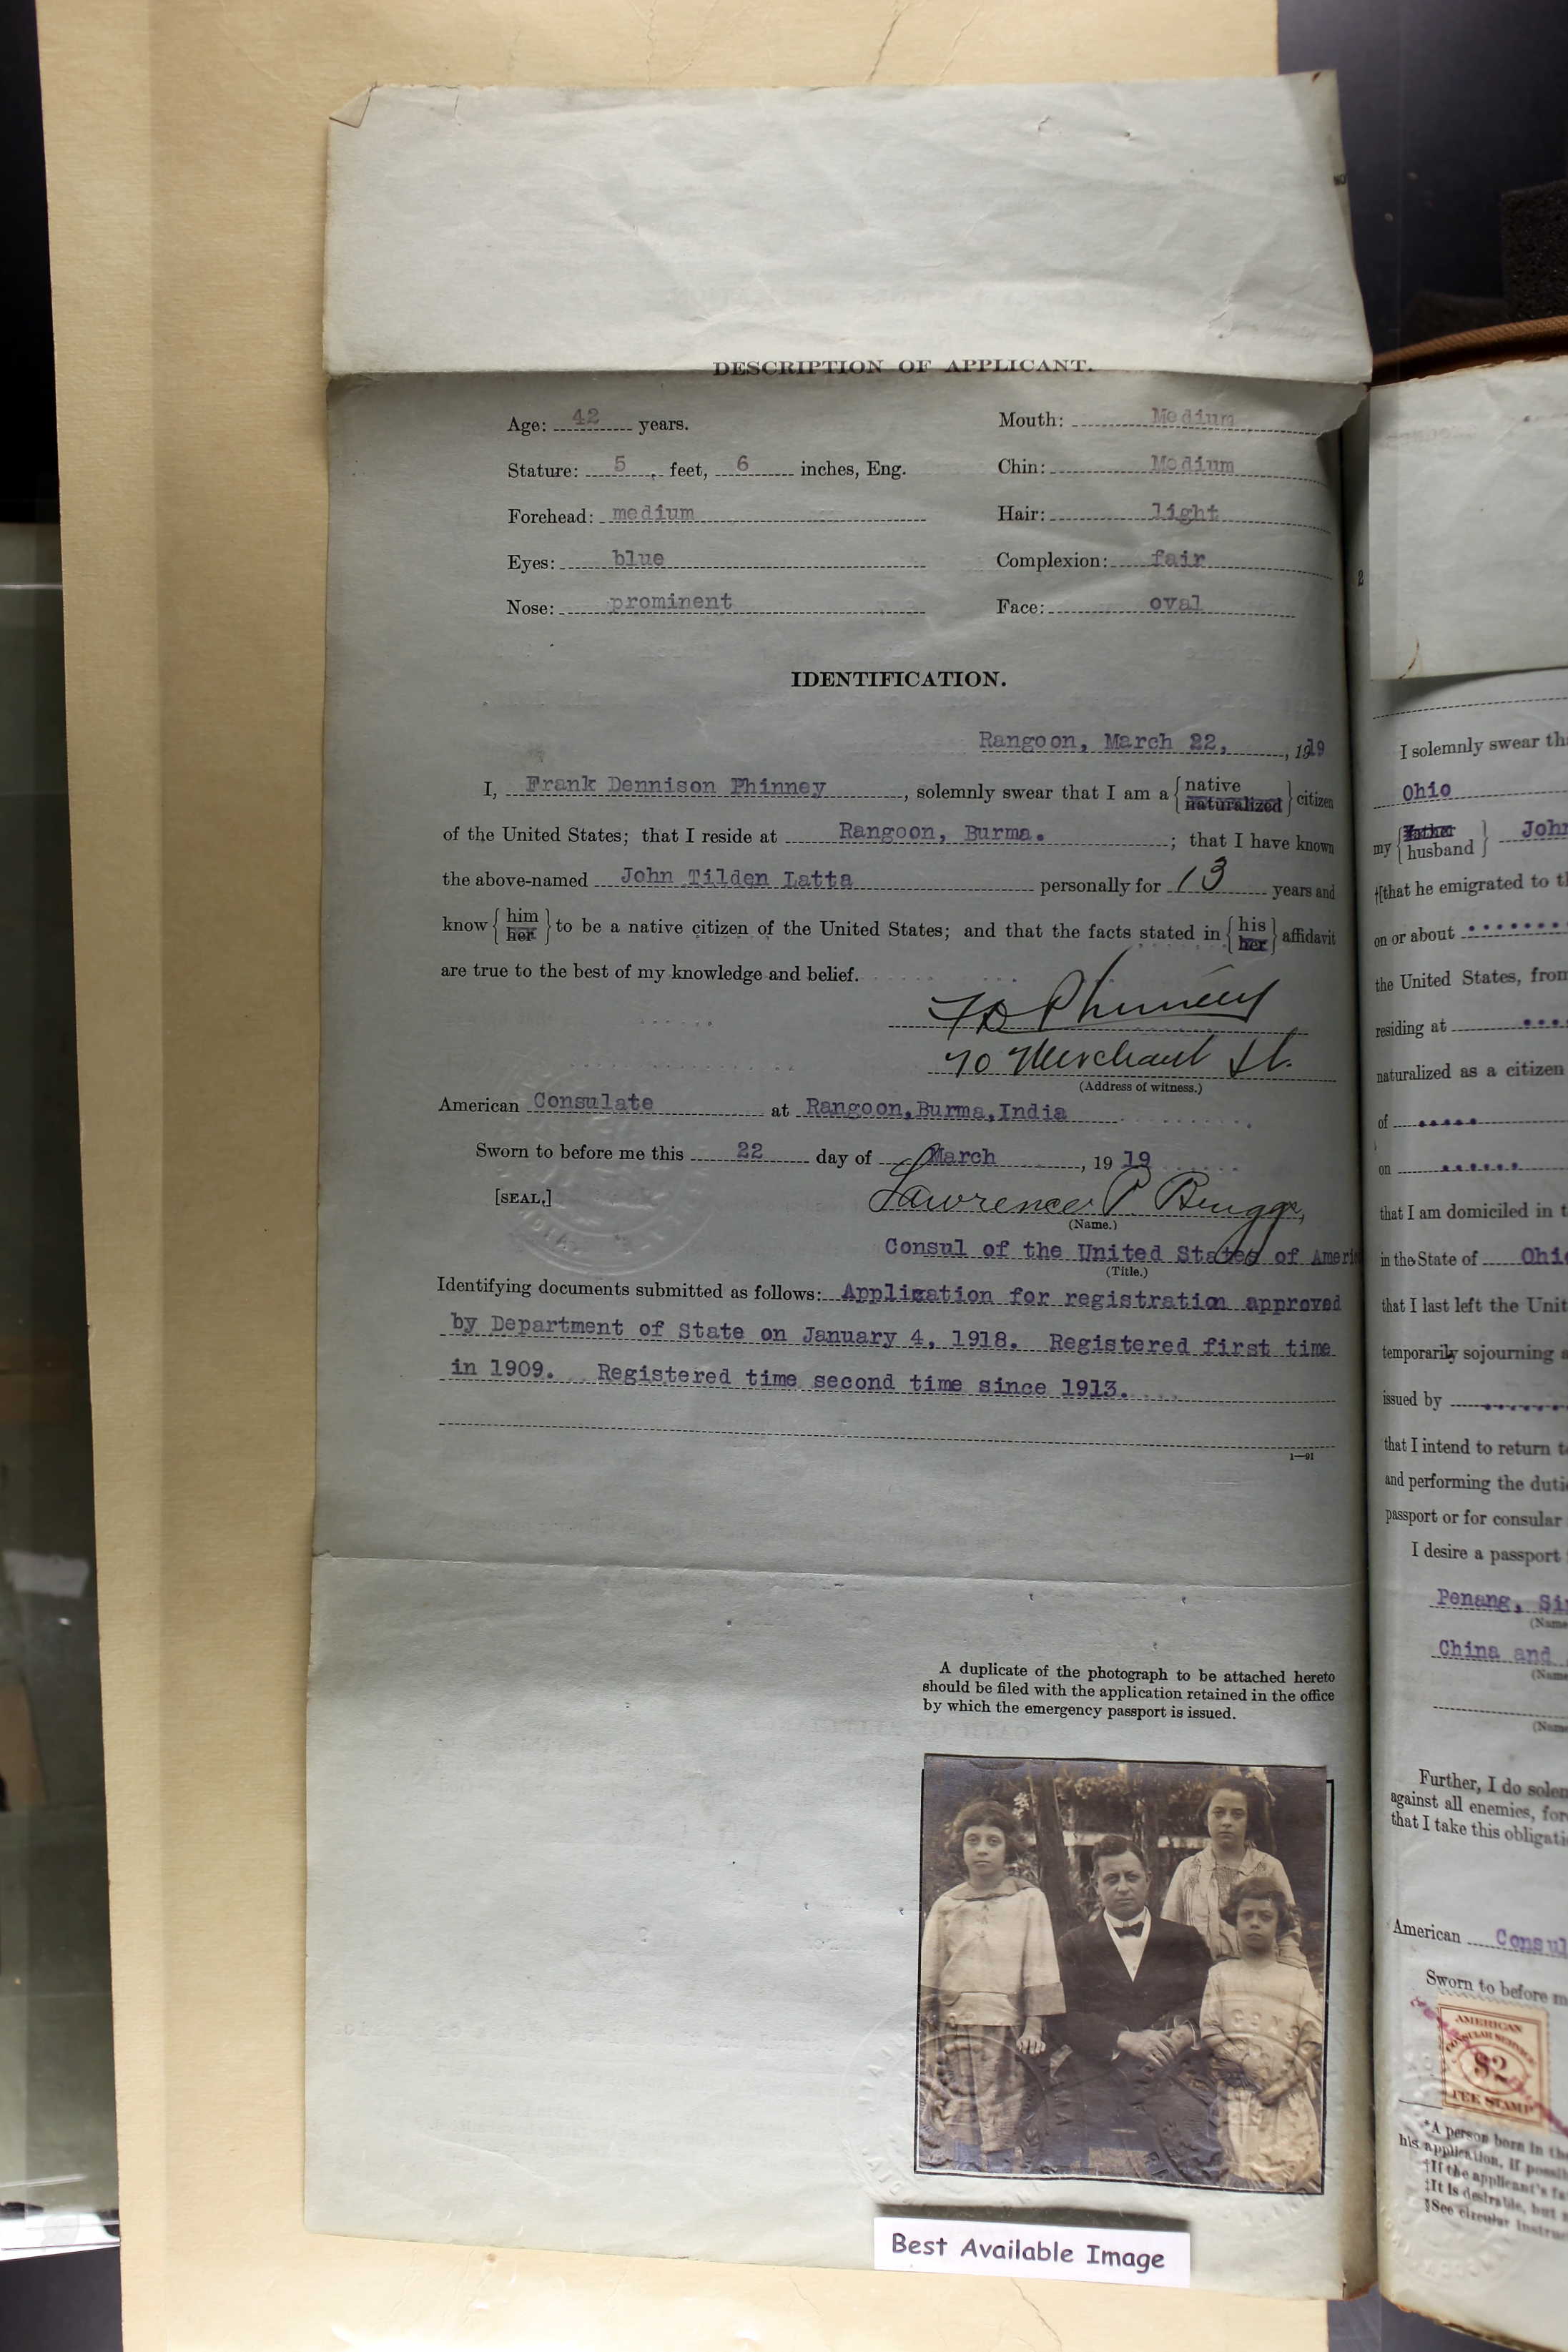 DESCRIPTION OF APPLICANT.
Age: 42 years.
Mouth: Medium
Stature: 5 feet, 6 inches, Eng.
Chin: Medium
Forehead: medium
Hair: light
Eyes: blue
Complexion: fair
Nose: prominent
Face: oval
IDENTIFICATION.
Rangoon, March 22, , 1919
I, Frank Dennison Phinney , solemnly swear that I am a { native naturalized } citizen
of the United States; that I reside at Rangoon, Burma. ; that I have known
the above-named John Tilden Latta personally for 13 years and
know { him her } to be a native citizen of the United States; and that the facts stated in { his her } affidavit
are true to the best of my knowledge and belief.
FD Phinney
70 Merchant St.
(Address of witness.)
American Consulate at Rangoon,Burma,India
Sworn to before me this 22 day of March , 19 19
[SEAL.]
Lawrence P. Briggs,
(Name.)
Consul of the United States of Ameri
(Title.)
Identifying documents submitted as follows: Application for registration approved
by Department of State on January 4, 1918. Registered first time
in 1909. Registered time second time since 1913.
1—91
A duplicate of the photograph to be attached hereto
should be filed with the application retained in the office
by which the emergency passport is issued.
Best Available Image
2
I solemnly swear th
Ohio
my { father husband } John
†[that he emigrated to t
on or about
the United States, from
residing at
naturalized as a citizen
of
on
that I am domiciled in t
in the State of Ohi
that I last left the Unit
temporarily sojourning a
issued by
that I intend to return t
and performing the duti
passport or for consular
I desire a passport
Penang, Si
(Name
China and
(Name
(Name
Further, I do solem
against all enemies, for
that I take this obligati
American Consul
Sworn to before m
AMERICAN
CONSULAR SERVICE
$2
FEE STAMP
*A person born in the
his application, if possi
†If the applicant's fa
‡It is desirable, but
§See circular instruc